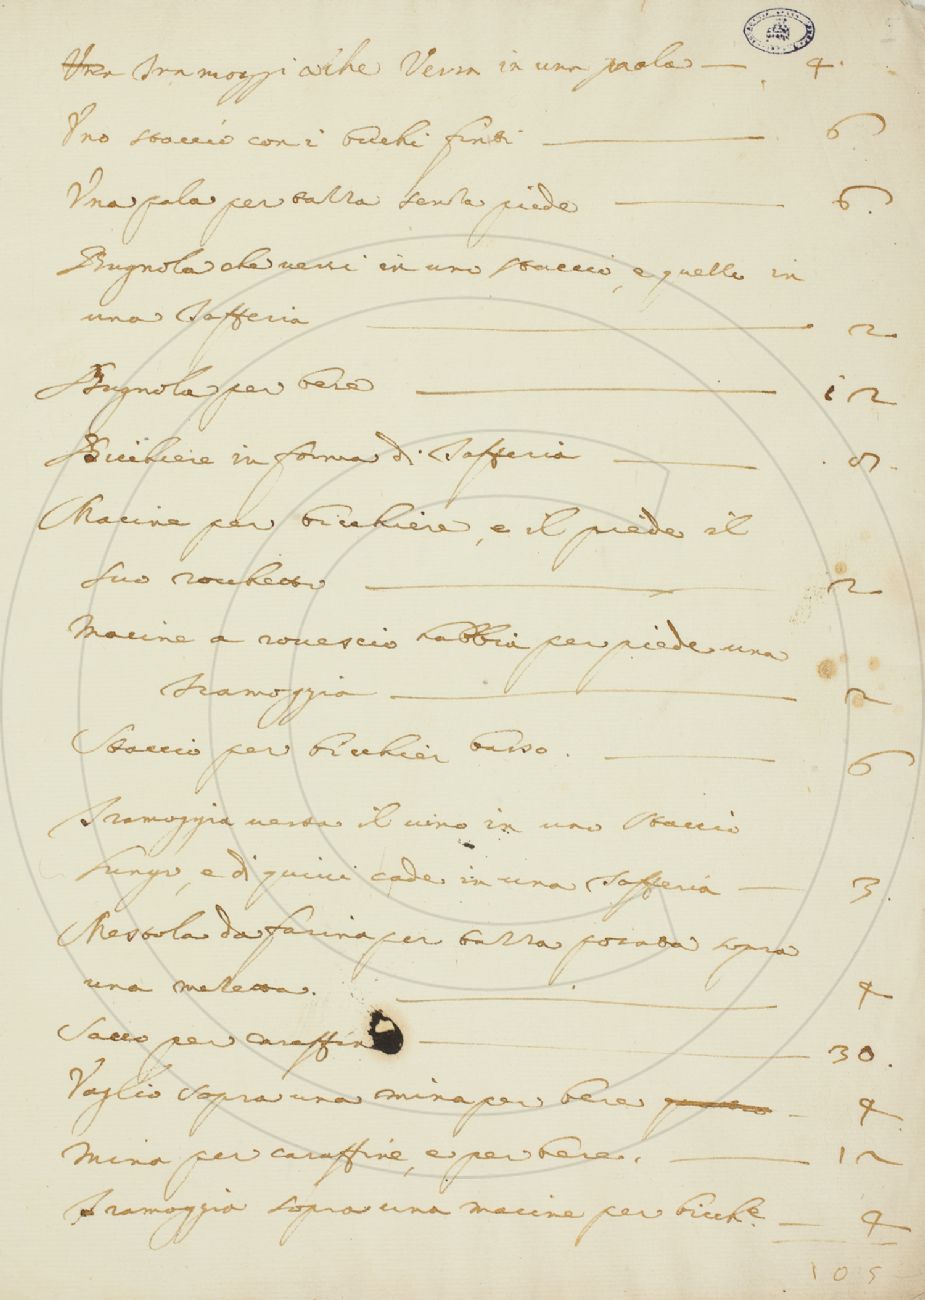 Una Tramoggia che Versa in una paola — 4.
Uno staccio con i buchi finti — 6
Una pala per tazza senza piede — 6.
Bugnola che versi in uno staccio, e quello in
una Tafferia — 2.
Bugnola per bere — 12
Bicchiere in forma di Tafferia — 8.
Macine per bicchiere, e il piede il
suo rocchetto — 2
Macine a rovescio habbia per piede una
Tramoggia — 2
Staccio per bicchier basso. — 6
Tramoggia versa il vino in uno staccio
lungo, e di quivi cade in una Tafferia — 3.
Mestola da farina per tazza posata sopra
una meletta. — 4
Sacco per caraffin — 30.
Vaglio sopra una mina per bere — 4
Mina per caraffine, e per bere. — 12
Tramoggia sopra una macine per bicch.e — 4
105